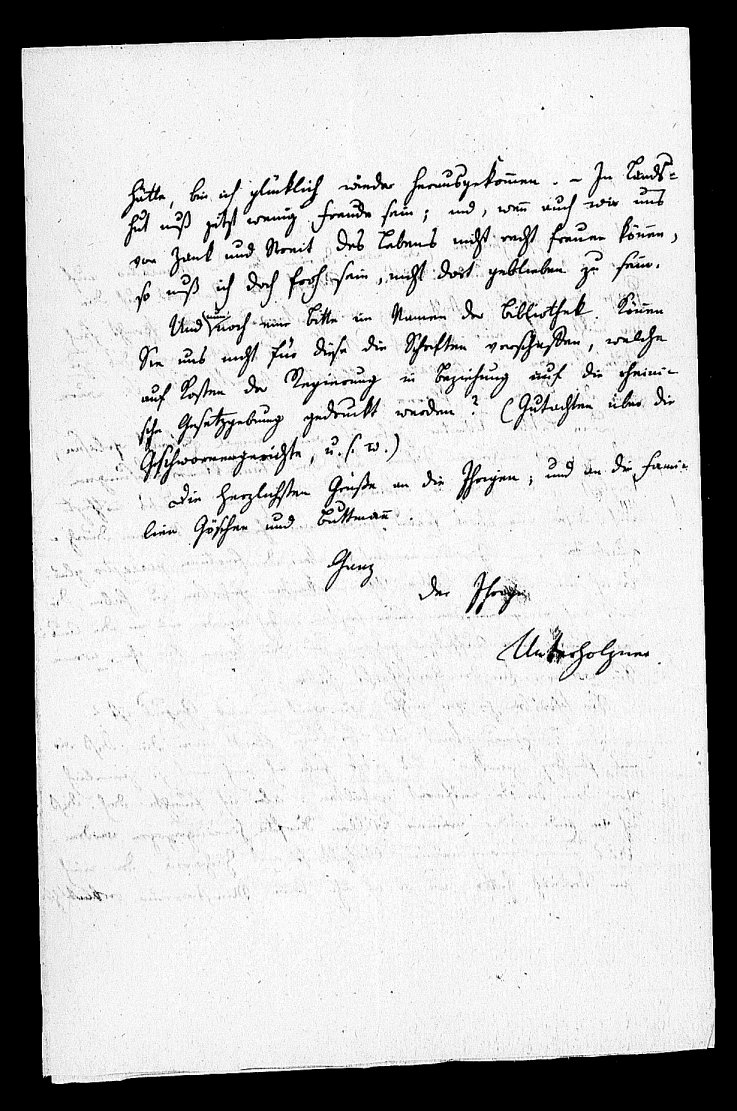 hätte, bin ich glücklich wieder herausgekommen. – In Lands-
hut muß jetzt wenig Freude sein; und, wenn auch wir uns
vor Zank und Streit des Lebens nicht recht freuen können,
so muß ich doch froh sein, nicht dort geblieben zu sein.
Und nun noch eine Bitte im Namen der Bibliothek. Können
Sie uns nicht für diese die Schriften verschaffen, welche
auf Kosten der Regierung in Beziehung auf die rheini-
sche Gesetzgebung gedruckt werden? (Gutachten über die
Geschwornengerichte, u. s. w.)
Die herzlichsten Grüße an die Ihrigen; und an die Fami-
lien Göschen und Buttmann.
Ganz
der Ihrige
Unterholzner.